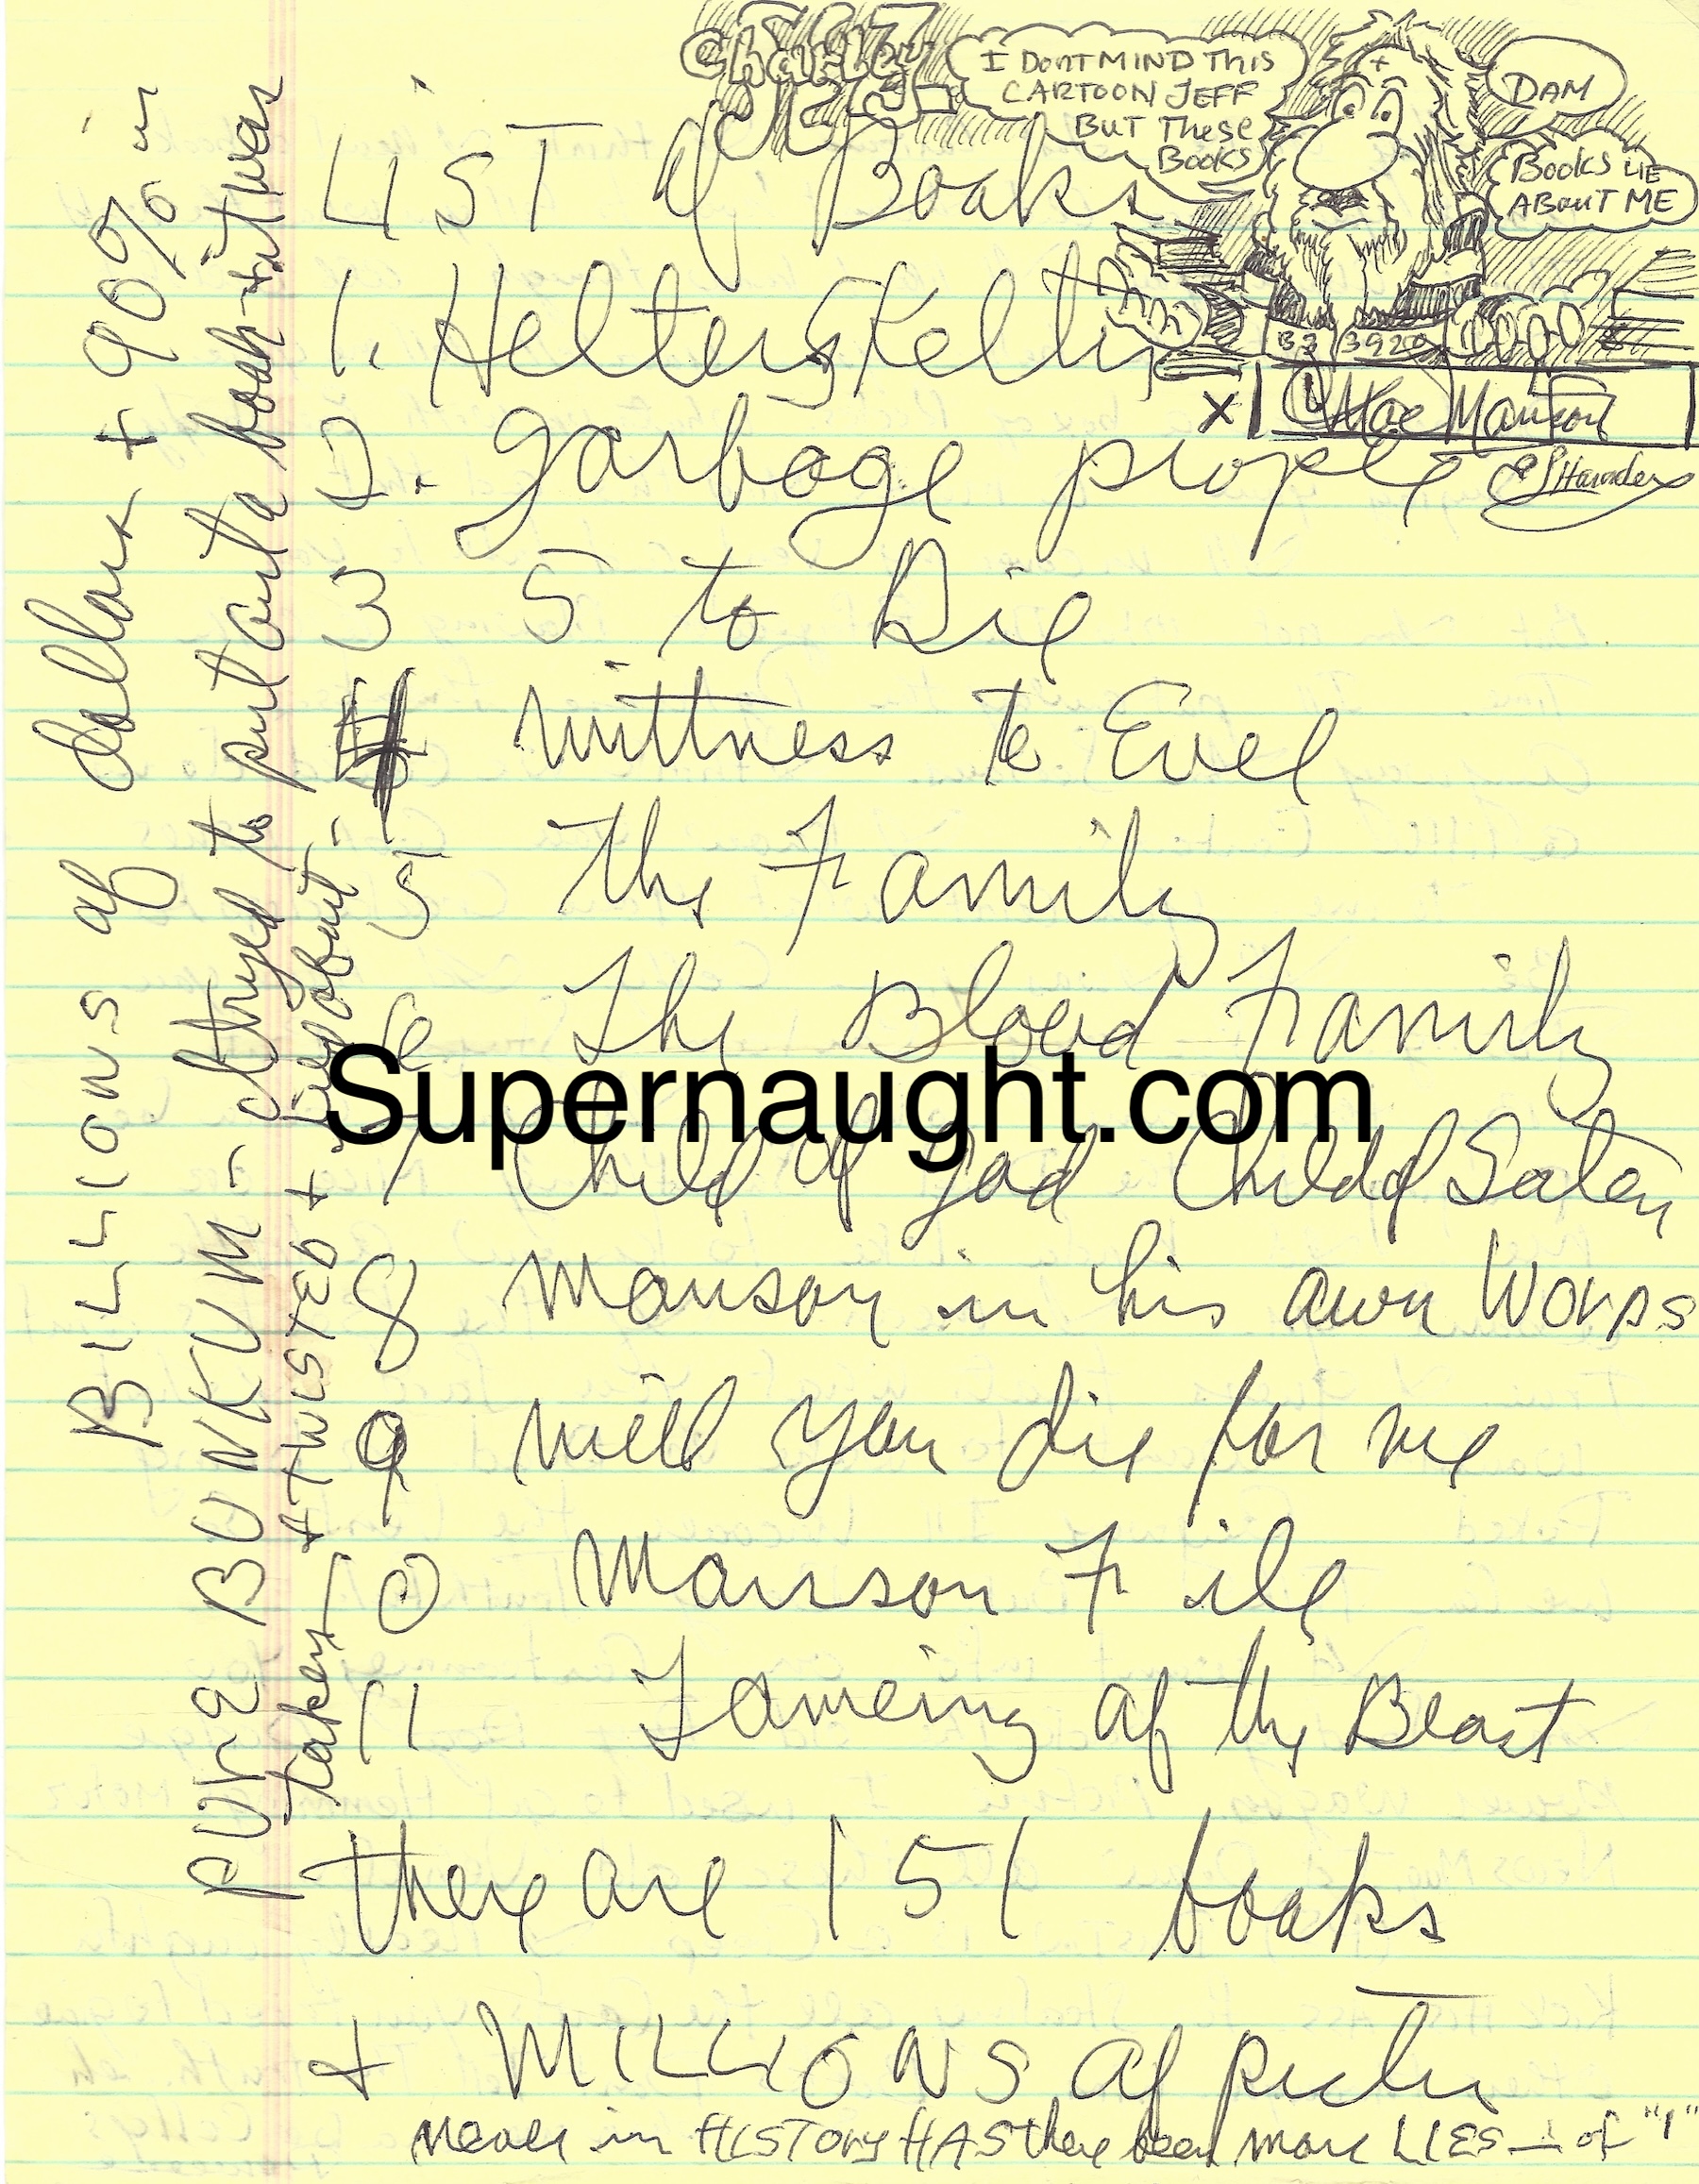 Charley
I DONT MIND THIS
CARTOON JEFF
BUT THESE
BOOKS
DAM
BOOKS LIE
ABOUT ME
LIST of Books
1. Helter Skelter
X
Manson
2. garbage people
3 5 to Die
wittness to Evel
5 The Family
6 The Blood Family
Supernaught.com
7 Child of god Child of Satan
8 Manson in his own WORDS
9 will you die for me
10 Manson File
11 Tameing of the Beast
there are 151 books
+ MILLIONS of
never in HISTORY HAS there been more LIES of "1"
BILLIONS of dollars + 90% is
PURE BUNKUM - I tryed to put out a book + it was
taken + TWISTED + lied about -